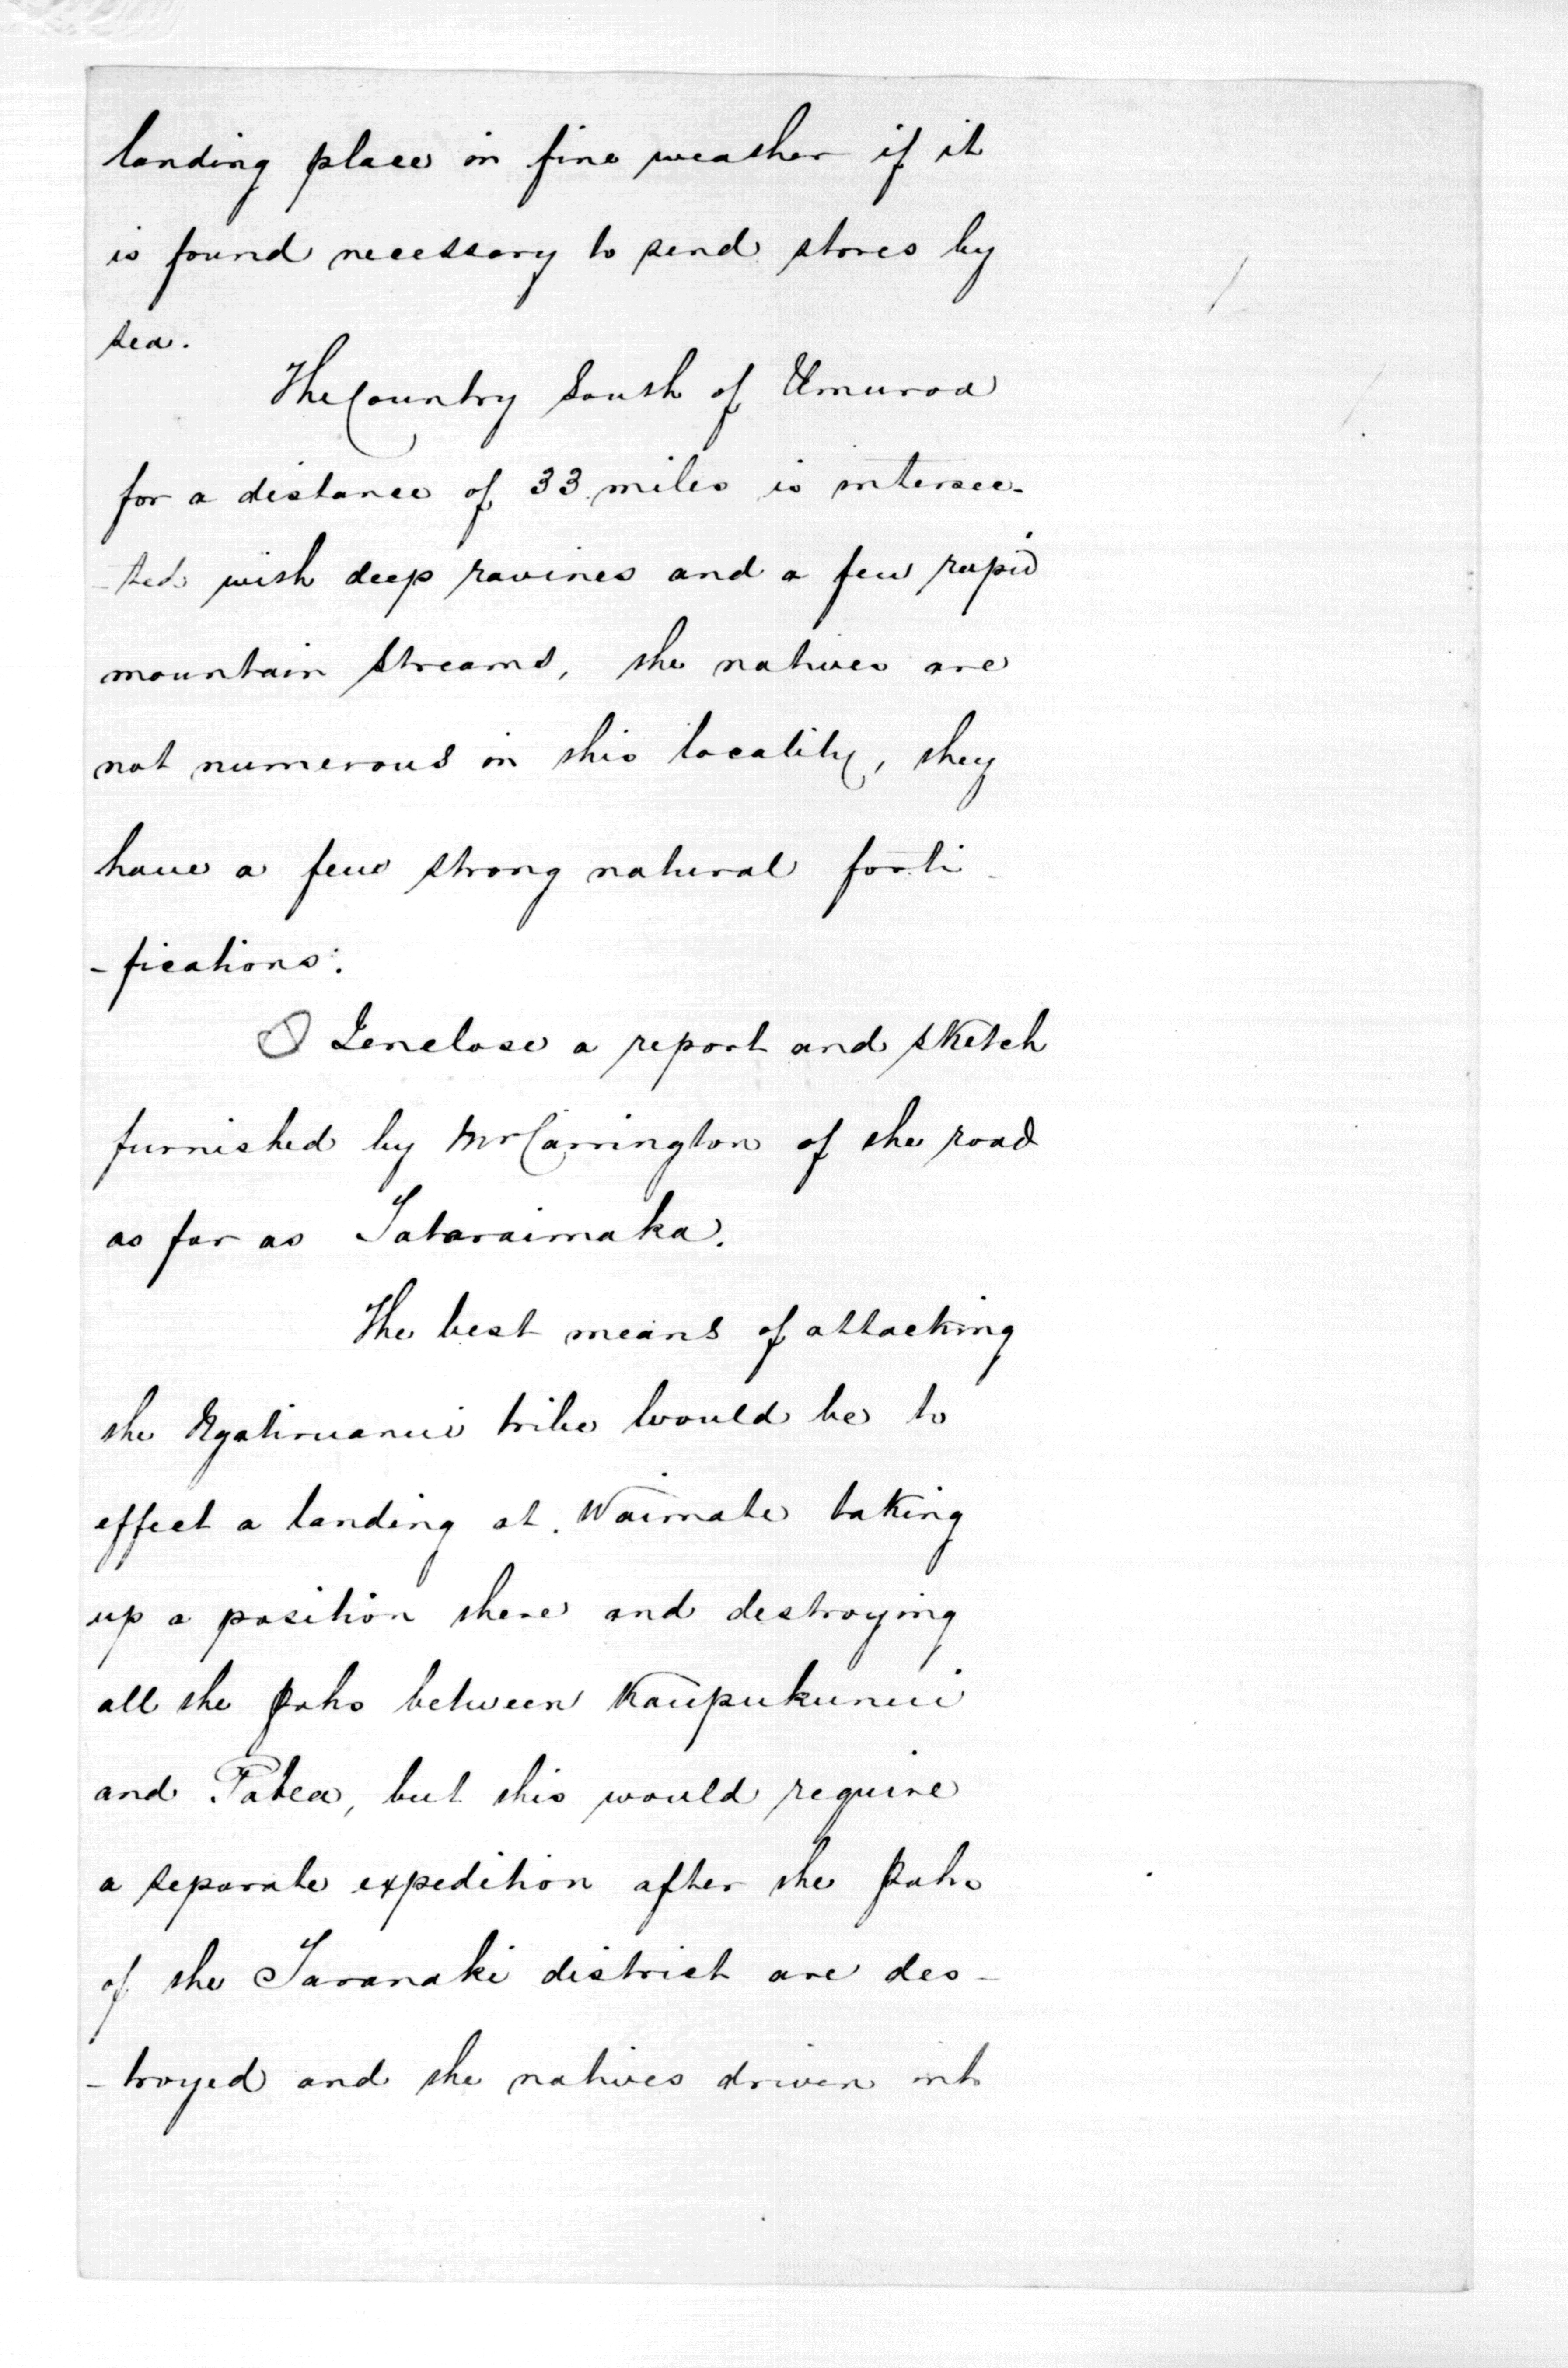 landing place in fine weather if it
is found necessary to send stores by
sea.
The Country South of Umuroa
for a distance of 33 miles is intersec-
-ted with deep ravines and a few rapid
mountain streams, the natives are
not numerous in this locality, they
have a few strong natural forti-
-fications.
I enclose a report and sketch
furnished by Mr Carrington of the road
as far as Tataraimaka.
The best means of attacking
the Ngatiruanui tribe would be to
effect a landing at Waimate taking
up a position there and destroying
all the Pahs between Kaupukunui
and Patea, but this would require
a separate expedition after the Pahs
of the Taranaki district are des-
-troyed and the natives driven into